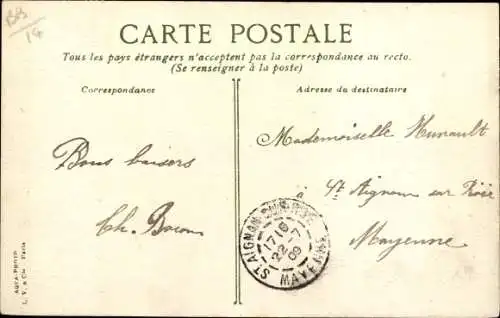 BB
14
CARTE POSTALE
Tous les pays étrangers n'acceptent pas la correspondance au recto.
(Se renseigner à la poste)
Correspondance
Adresse du destinataire
Bons baisers
Ch.
Mademoiselle Hunault
à St Aignan sur Roë
Mayenne
ST AIGNAN-SUR-ROË
17 15
22 -7
09
MAYENNE
AQUA-PHOTO
L. V. & Cie Paris